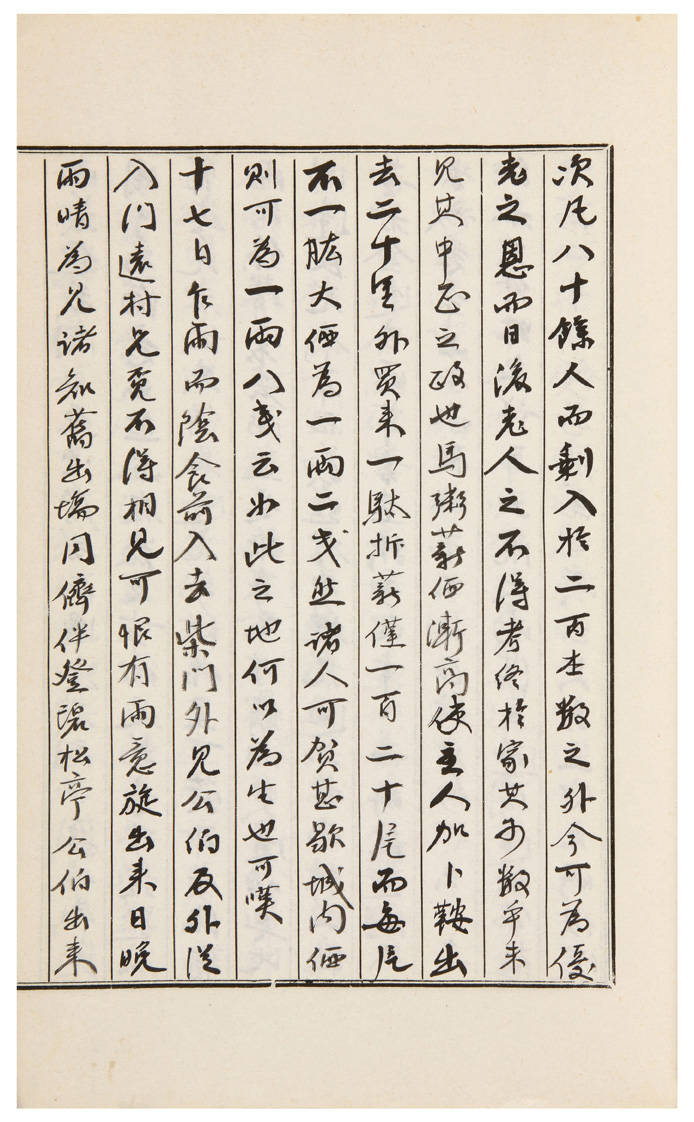 次凡八十餘人而剩入於二百本數之外今可為優
老之恩而日後老人之不得考終於家其可數乎未
見其中正之政也馬粥薪価漸高使主人加卜鞍出
去二十里外買來一駄折薪僅一百二十尾而每尾
不一肱大価為一兩二戔然諸人可賀甚歇城內価
則可為一兩八戔云如此之地何以為生也可嘆
十七日乍雨而陰食前入去柴門外見公伯反外從
入門遠村兄竟不得相見可恨有雨意旋出來日晩
雨晴為見諸知舊出場同儕伴登碧松亭公伯出來